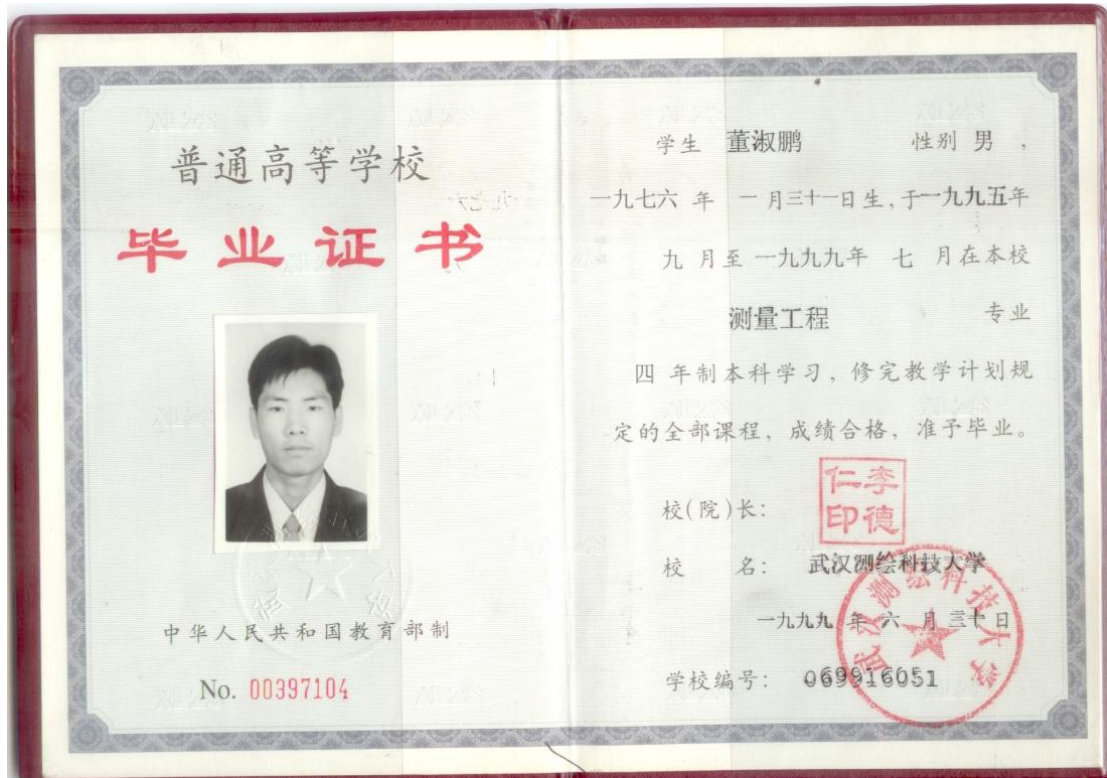 普通高等学校
毕业证书
中华人民共和国教育部制
No. 00397104
学生 董淑鹏 性别 男，
一九七六 年 一 月三十一日生，于一九九五年
九 月至 一九九九年 七 月在本校
测量工程 专业
四 年制本科学习，修完教学计划规
定的全部课程，成绩合格，准予毕业。
校(院)长：
李德仁印
校 名： 武汉测绘科技大学
一九九九 年 六 月 三十 日
学校编号： 069916051
武汉测绘科技大学